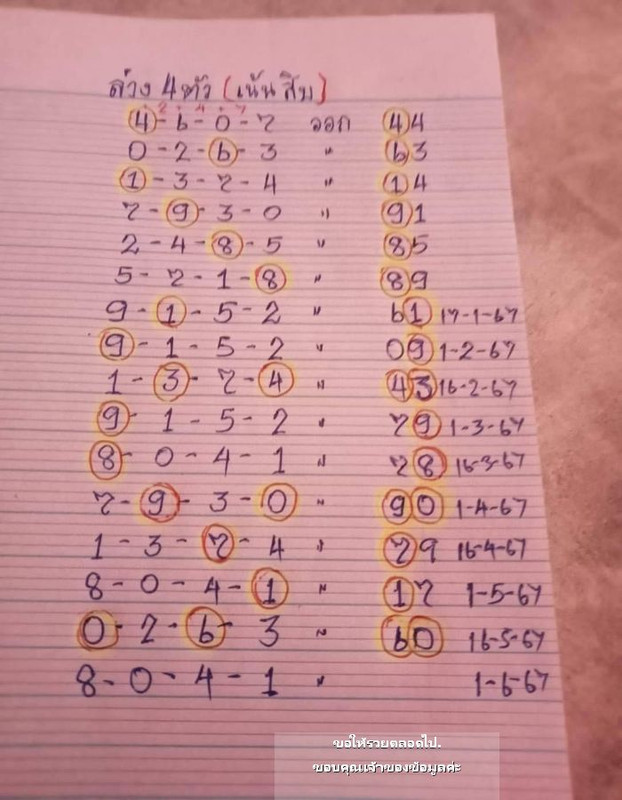 ล่าง 4 ตัว (เน้นสิบ)
4-6-0-7 ออก 44
0-2-6-3 " 63
1-3-7-4 " 14
7-9-3-0 " 91
2-4-8-5 " 85
5-7-1-8 " 89
9-1-5-2 " 61 17-1-67
9-1-5-2 " 09 1-2-67
1-3-7-4 " 43 16-2-67
9-1-5-2 " 79 1-3-67
8-0-4-1 " 78 16-3-67
7-9-3-0 " 90 1-4-67
1-3-7-4 " 79 16-4-67
8-0-4-1 " 17 1-5-67
0-2-6-3 " 60 16-5-67
8-0-4-1 " 1-6-67
ขอให้รวยตลอดไป.
ขอบคุณเจ้าของข้อมูลค่ะ